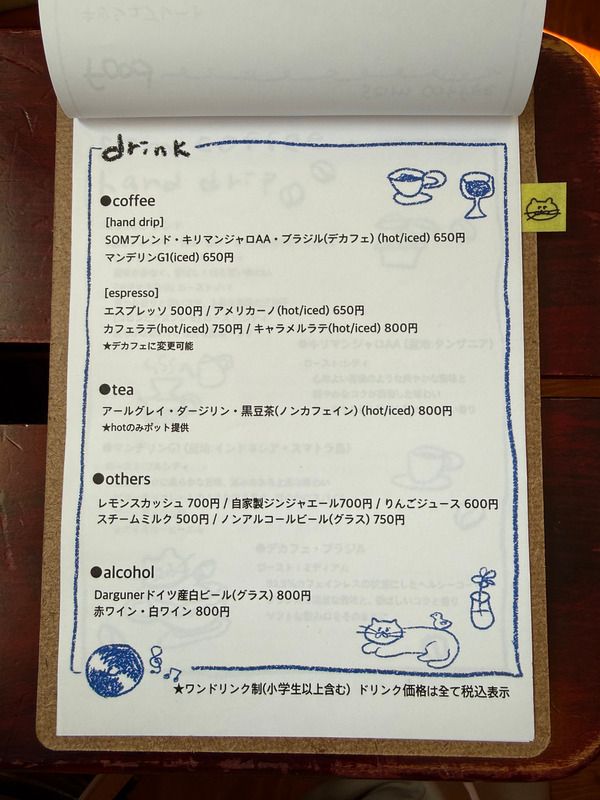 drink
●coffee
[hand drip]
SOMブレンド・キリマンジャロAA・ブラジル(デカフェ) (hot/iced) 650円
マンデリンG1(iced) 650円
[espresso]
エスプレッソ 500円 / アメリカーノ(hot/iced) 650円
カフェラテ(hot/iced) 750円 / キャラメルラテ(hot/iced) 800円
★デカフェに変更可能
●tea
アールグレイ・ダージリン・黒豆茶(ノンカフェイン) (hot/iced) 800円
★hotのみポット提供
●others
レモンスカッシュ 700円 / 自家製ジンジャエール700円 / りんごジュース 600円
スチームミルク 500円 / ノンアルコールビール(グラス) 750円
●alcohol
Dargunerドイツ産白ビール(グラス) 800円
赤ワイン・白ワイン 800円
★ワンドリンク制(小学生以上含む) ドリンク価格は全て税込表示